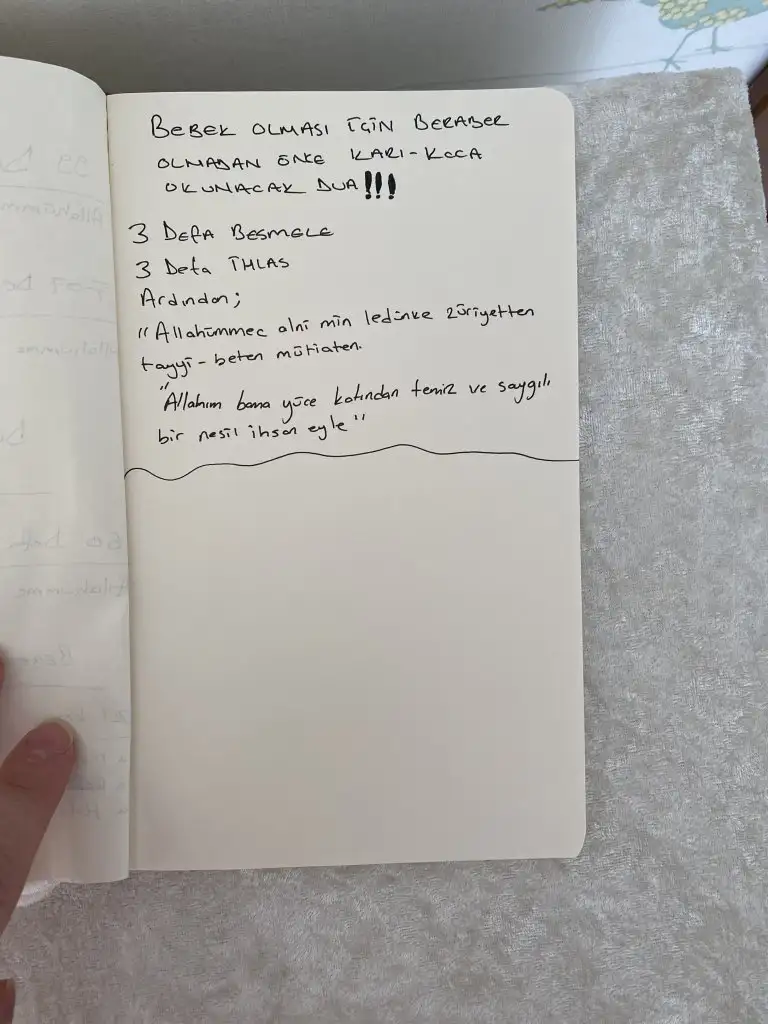 BEBEK OLMASI İÇİN BERABER
OLMADAN ÖNCE KARI-KOCA
OKUNACAK DUA!!!
3 Defa BESMELE
3 Defa İHLAS
Ardından;
"Allahümmec alni min ledünke züriyetten
tayyi-beten mütiaten.
"Allahım bana yüce katından temiz ve saygılı
bir nesil ihsan eyle"